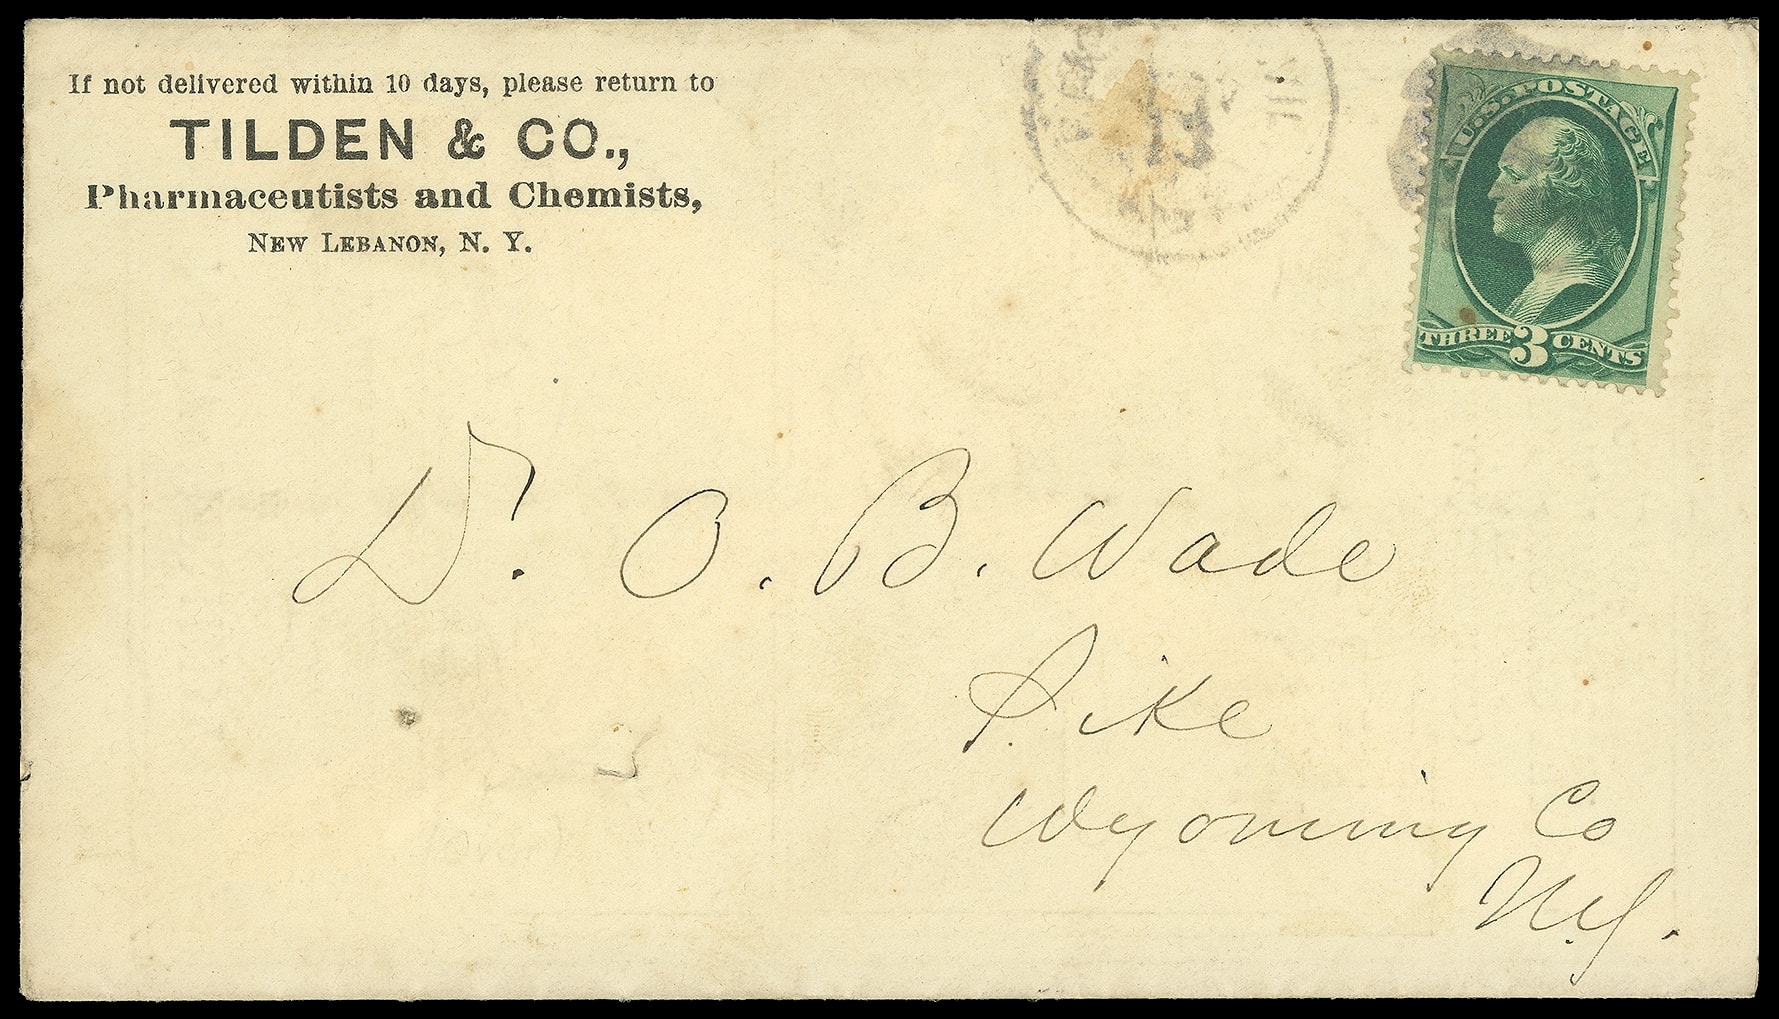 If not delivered within 10 days, please return to
TILDEN & CO.,
Pharmaceutists and Chemists,
NEW LEBANON, N. Y.
U.S. POSTAGE
THREE 3 CENTS
Dr. O. B. Wade
Pike
Wyoming Co
N.Y.